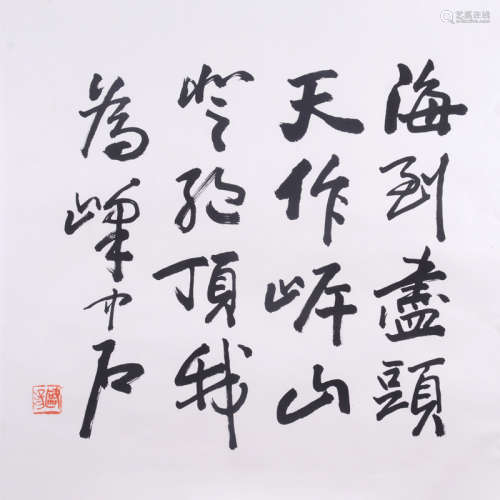 海到盡頭
天作岸山
登絕頂我
為峰中石
艺狐在线